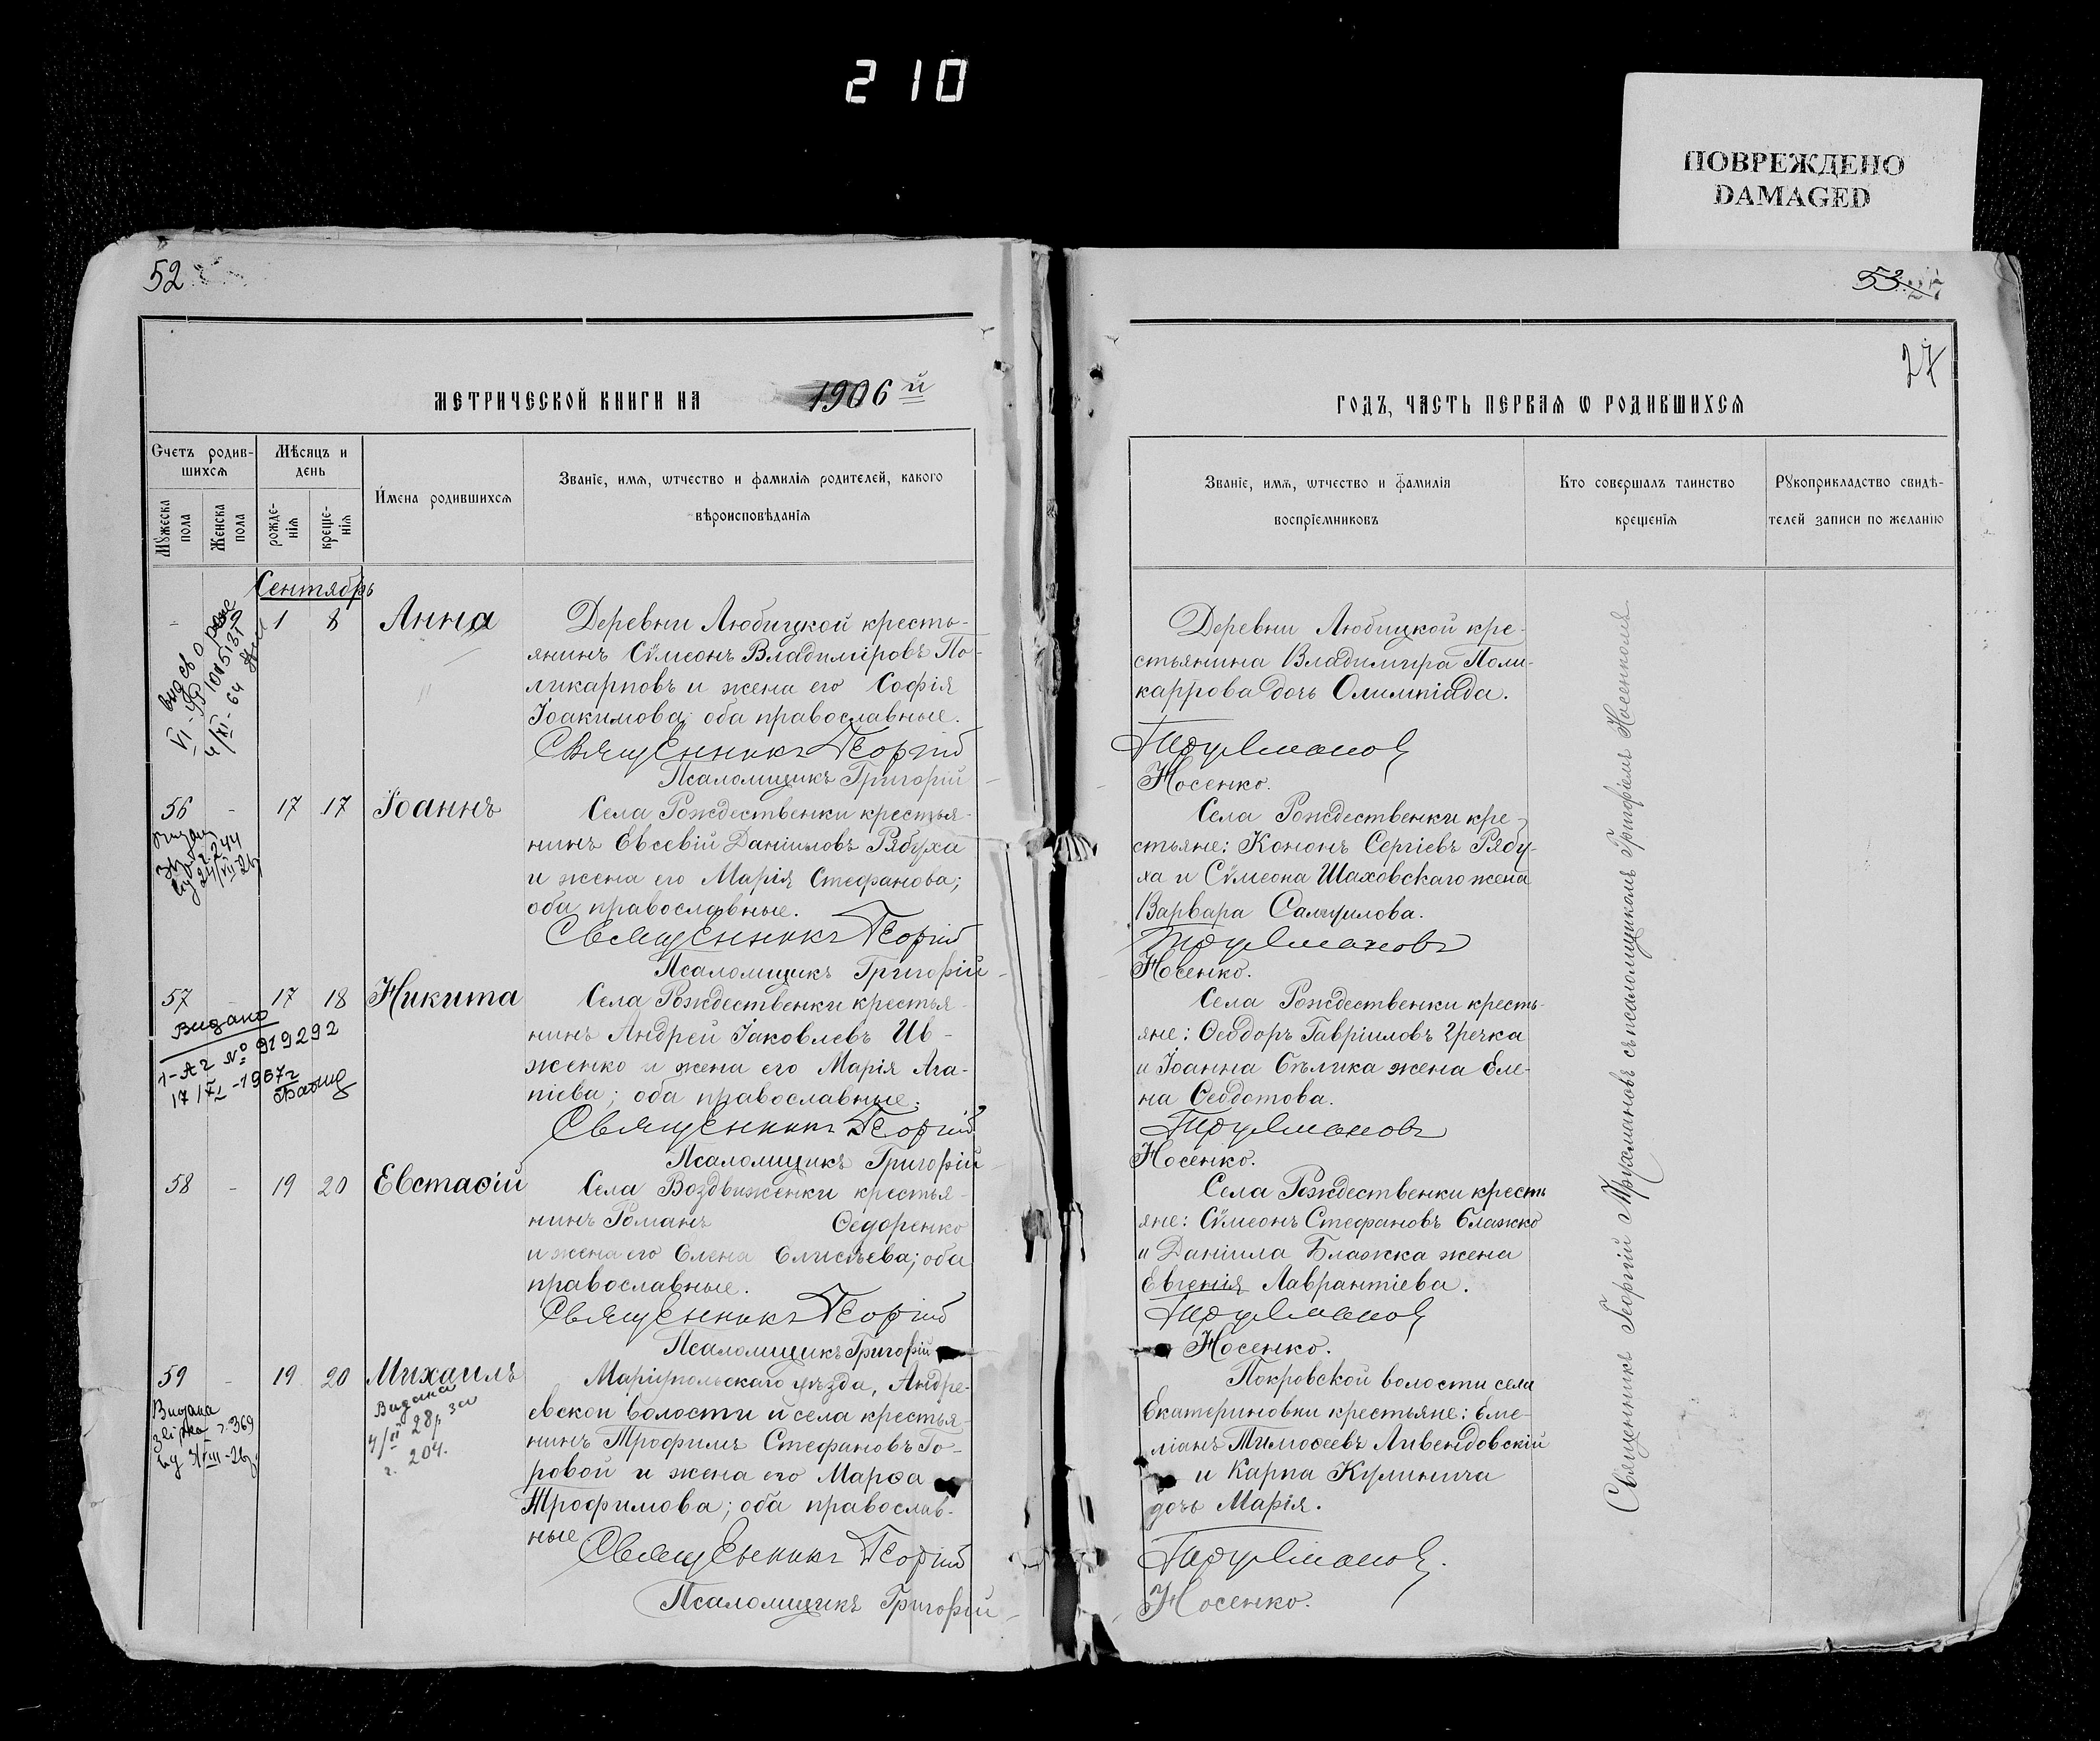 210
ПОВРЕЖДЕНО
DAMAGED
52
53
27
МЕТРИЧЕСКОЙ КНИГИ НА 1906й
Счетъ родив-
шихсѧ
Мѣсяцъ и
день
Мꙋжеска
пола
Женска
пола
рожде-
нїѧ
креще-
нїѧ
Имена родившихсѧ
Званїе, имѧ, ѿтчество и фамилїѧ родителей, какого
вѣроисповѣданїѧ
Сентябрь
1 8 Анна
Деревни Любицкой кресть-
янинъ Сѵмеонъ Владиміровъ По-
ликарповъ и жена его Софія
Іоакимова; оба православные.
Священникъ Георгій
Псаломщикъ Григорій
56 - 17 17 Іоаннъ
Села Рождественки крестья-
нинъ Евсевій Даніиловъ Рябуха
и жена его Марія Стефанова;
оба православные.
Священникъ Георгій
Псаломщикъ Григорій
57 - 17 18 Никита
Видано
1-А2 № 919292
17/XI-1967г
Села Рождественки крестья-
нинъ Андрей Іаковлевъ Ив-
женко и жена его Марія Ага-
піева; оба православные.
Священникъ Георгій
Псаломщикъ Григорій
58 - 19 20 Евстаѳій
Села Воздвиженки крестья-
нинъ Романъ Ѳедоренко
и жена его Елена Елисѣева; оба
православные.
Священникъ Георгій
Псаломщикъ Григорій
59 - 19 20 Михаилъ
Видана
204.
Маріупольскаго уѣзда, Андре-
евской волости и села крестья-
нинъ Трофимъ Стефановъ Го-
ровой и жена его Марѳа
Трофимова; оба православ-
ные.
Священникъ Георгій
Псаломщикъ Григорій
27
ГОДЪ, ЧАСТЬ ПЕРВАѦ Ѡ РОДИВШИХСѦ
Званїе, имѧ, ѿтчество и фамилїя
воспрїемниковъ
Кто совершалъ таинство
крещенїѧ
Рꙋкоприкладство свидѣ-
телей записи по желанїю
Деревни Любицкой кре-
стьянина Владимира Поли-
карпова дочь Олимпіада.
Трухмановъ
Носенко.
Села Рождественки кре-
стьяне: Кононъ Сергіевъ Рябу-
ха и Сѵмеона Шаховскаго жена
Варвара Самуилова.
Трухмановъ
Носенко.
Села Рождественки кресть-
яне: Ѳеодоръ Гавріиловъ Гречка
и Іоанна Бѣлика жена Еле-
на Ѳеодотова.
Трухмановъ
Носенко.
Села Рождественки кресть
яне: Сѵмеонъ Стефановъ Блажко
и Даніила Блажка жена
Евгенія Лаврантіева.
Трухмановъ
Носенко.
Покровской волости села
Екатериновки крестьяне: Еме-
ліанъ Тимоѳеевъ Ливендовскій
и Карпа Кулинича
дочь Марія.
Трухмановъ.
Носенко.
Священникъ Георгій Трухмановъ съ псаломщикомъ Григоріемъ Носенкомъ